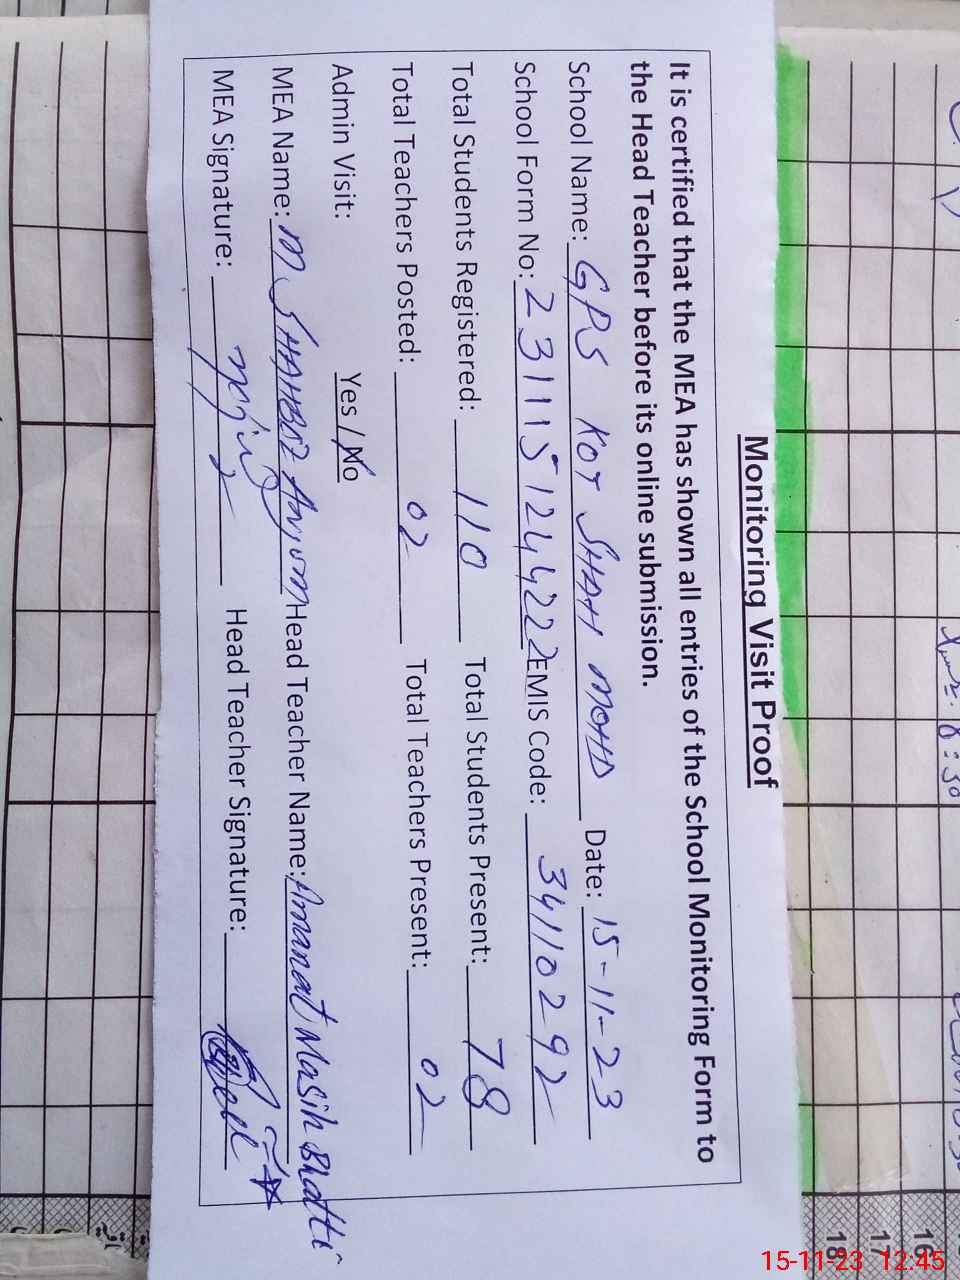 Monitoring Visit Proof
It is certified that the MEA has shown all entries of the School Monitoring Form to
the Head Teacher before its online submission.
School Name: GPS KOT SHAH MOHD Date: 15-11-23
School Form No: 231115124222 EMIS Code: 34110292
Total Students Registered: 110 Total Students Present: 78
Total Teachers Posted: 02 Total Teachers Present: 02
Admin Visit: Yes / No
MEA Name: M SHAHBAZ Anjum Head Teacher Name: Amanat Masih Bhatti
MEA Signature: Head Teacher Signature:
8:30
16
17
18
15-11-23 12:45